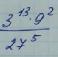 3¹³·9²
27⁵